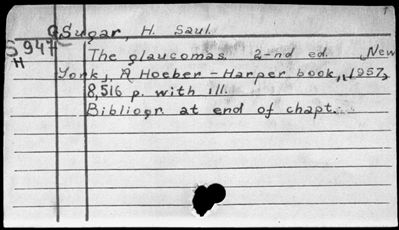 Sugar, H. Saul.
S947
H
The glaucomas. 2-nd ed. New
York, A Hoeber-Harper book, 1957,
8,516 p. with ill.
Bibliogr. at end of chapt.